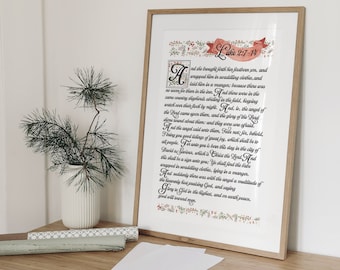 Luke 2:7-14
And she brought forth her firstborn son, and
wrapped him in swaddling clothes, and
laid him in a manger; because there was
no room for them in the inn. And there were in the
same country shepherds abiding in the field, keeping
watch over their flock by night. And, lo, the angel of
the Lord came upon them, and the glory of the Lord
shone round about them: and they were sore afraid.
And the angel said unto them, Fear not: for, behold,
I bring you good tidings of great joy, which shall be to
all people. For unto you is born this day in the city of
David a Saviour, which is Christ the Lord. And
this shall be a sign unto you; Ye shall find the babe
wrapped in swaddling clothes, lying in a manger.
And suddenly there was with the angel a multitude of
the heavenly host praising God, and saying,
Glory to God in the highest, and on earth peace,
good will toward men.